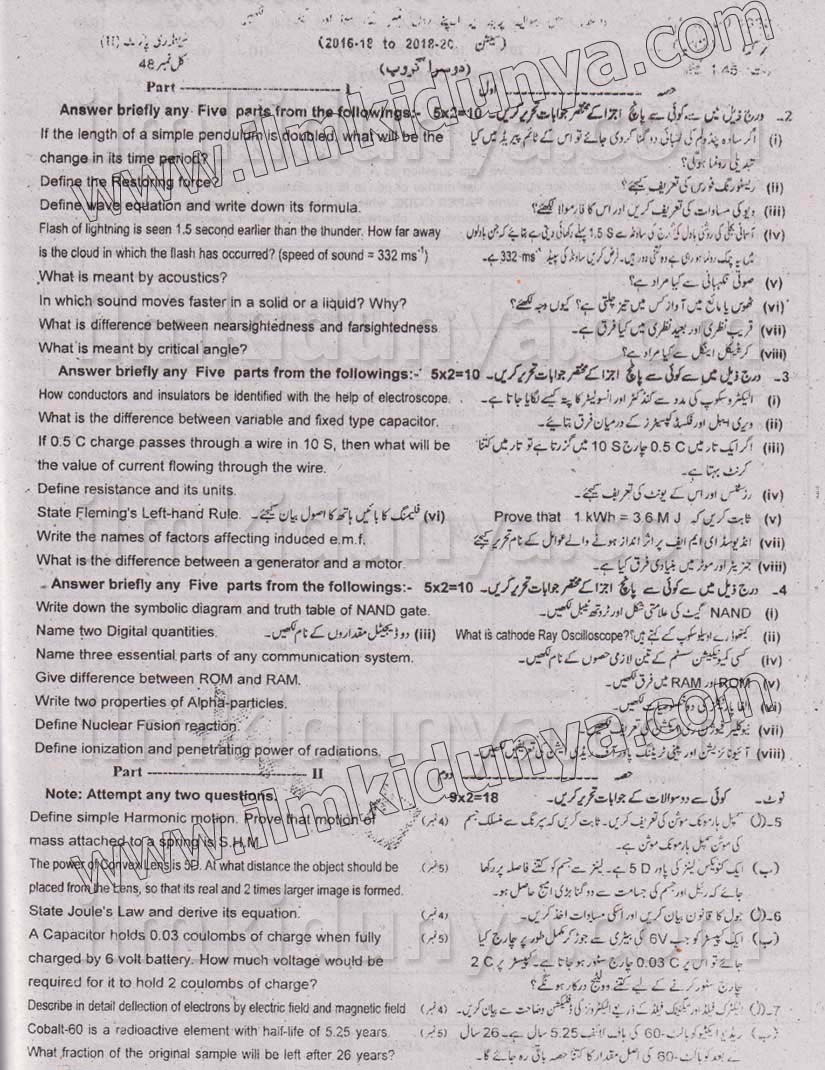 (2016-18 to 2018-20 سیشن)
سیکنڈری پارٹ (II)
(دوسرا گروپ)
کل نمبر 48
وقت 1.45
Part ------------------ I حصہ ------------------ اول
Answer briefly any Five parts from the followings:- 5x2=10 2۔ درج ذیل میں سے کوئی سے پانچ اجزا کے مختصر جوابات تحریر کریں۔
If the length of a simple pendulum is doubled, what will be the (i) اگر سادہ پنڈولم کی لمبائی دوگنا کر دی جائے تو اس کے ٹائم پیریڈ میں کیا
change in its time period? تبدیلی رونما ہوگی؟
Define the Restoring force? (ii) ریسٹورنگ فورس کی تعریف کیجیئے؟
Define wave equation and write down its formula. (iii) ویو کی مساوات کی تعریف کریں اور اس کا فارمولا لکھئے؟
Flash of lightning is seen 1.5 second earlier than the thunder. How far away (iv) آسمانی بجلی کی روشنی بادل کی گرج کی ساؤنڈ سے 1.5 S پہلے دکھائی دیتی ہے بتائیے کہ جن بادلوں
is the cloud in which the flash has occurred? (speed of sound = 332 ms⁻¹) میں یہ چمک رونما ہو رہی ہے وہ کتنی دور ہیں۔ فرض کریں ساؤنڈ کی سپیڈ 332 ms⁻¹ ہے۔
What is meant by acoustics? (v) صوتی نگہبانی سے کیا مراد ہے؟
In which sound moves faster in a solid or a liquid? Why? (vi) ٹھوس یا مائع میں آواز کس میں تیز چلتی ہے؟ کیوں وجہ لکھئے؟
What is difference between nearsightedness and farsightedness (vii) قریب نظری اور بعید نظری میں کیا فرق ہے۔
What is meant by critical angle? (viii) کریٹیکل اینگل سے کیا مراد ہے؟
Answer briefly any Five parts from the followings:- 5x2=10 3۔ درج ذیل میں سے کوئی سے پانچ اجزا کے مختصر جوابات تحریر کریں۔
How conductors and insulators be identified with the help of electroscope. (i) الیکٹروسکوپ کی مدد سے کنڈکٹر اور انسولیٹر کا پتہ کیسے لگایا جاتا ہے۔
What is the difference between variable and fixed type capacitor. (ii) ویری ایبل اور فکسڈ کپیسٹرز کے درمیان فرق بتائیے۔
If 0.5 C charge passes through a wire in 10 S, then what will be (iii) اگر ایک تار میں 0.5 C چارج 10 S میں گزرتا ہے تو تار میں کتنا
the value of current flowing through the wire. کرنٹ بہتا ہے۔
Define resistance and its units. (iv) رزسٹنس اور اس کے یونٹ کی تعریف کیجیئے۔
State Fleming's Left-hand Rule. (vi) فلیمنگ کا بائیں ہاتھ کا اصول بیان کیجیئے۔ Prove that 1 kWh = 3.6 M J (v) ثابت کریں کہ
Write the names of factors affecting induced e.m.f. (vii) انڈیوسڈ ای ایم ایف پر اثر انداز ہونے والے عوامل کے نام تحریر کیجیئے
What is the difference between a generator and a motor. (viii) جنریٹر اور موٹر میں بنیادی فرق کیا ہے۔
Answer briefly any Five parts from the followings:- 5x2=10 4۔ درج ذیل میں سے کوئی سے پانچ اجزا کے مختصر جوابات تحریر کریں۔
Write down the symbolic diagram and truth table of NAND gate. (i) NAND گیٹ کی علامتی شکل اور ٹروتھ ٹیبل لکھیں۔
Name two Digital quantities. (iii) دو ڈیجیٹل مقداروں کے نام لکھیں۔ What is cathode Ray Oscilloscope? (ii) کیتھوڈ رے اوسیلوسکوپ کسے کہتے ہیں؟
Name three essential parts of any communication system. (iv) کسی کمیونیکیشن سسٹم کے تین لازمی حصوں کے نام لکھیں۔
Give difference between ROM and RAM. (v) ROM اور RAM میں فرق لکھیں۔
Write two properties of Alpha-particles. (vi)
Define Nuclear Fusion reaction. (vii)
Define ionization and penetrating power of radiations. (viii)
Part ------------------ II حصہ ------------------ دوم
Note: Attempt any two questions. 9x2=18 نوٹ۔ کوئی سے دو سوالات کے جوابات تحریر کریں۔
Define simple Harmonic motion. Prove that motion of (4 نمبر) 5۔(ا) سمپل ہارمونک موشن کی تعریف کریں۔ ثابت کریں کہ سپرنگ سے منسلک جسم
mass attached to a spring is S.H.M کی موشن سمپل ہارمونک موشن ہے۔
The power of Convex Lens is 5D. At what distance the object should be (5 نمبر) (ب) ایک کنویکس لینز کی پاور 5 D ہے۔ لینز سے جسم کو کتنے فاصلہ پر رکھا
placed from the Lens, so that its real and 2 times larger image is formed. جائے کہ رئیل اور جسم کی جسامت سے دو گنا بڑی امیج حاصل ہو۔
State Joule's Law and derive its equation. (4 نمبر) 6۔(ا) جول کا قانون بیان کریں اور اسکی مساوات اخذ کریں۔
A Capacitor holds 0.03 coulombs of charge when fully (5 نمبر) (ب) ایک کپیسٹر کو جب 6V کی بیٹری سے جوڑ کر مکمل طور پر چارج کیا
charged by 6 volt battery. How much voltage would be جائے تو اس پر 0.03 C چارج سٹور ہو جاتا ہے۔ کپیسٹر پر 2 C
required for it to hold 2 coulombs of charge? چارج سٹور کرنے کے لیے کتنے وولٹیج درکار ہونگے؟
Describe in detail deflection of electrons by electric field and magnetic field (4 نمبر) 7۔(ا) الیکٹرک فیلڈ اور میگنیٹک فیلڈ کے ذریعے الیکٹرونز کی ڈفلیکشن وضاحت سے بیان کریں۔
Cobalt-60 is a radioactive element with half-life of 5.25 years. (5 نمبر) (ب) ریڈیو ایکٹو کوبالٹ-60 کی ہاف لائف 5.25 سال ہے۔ 26 سال
What fraction of the original sample will be left after 26 years? کے بعد کوبالٹ-60 کی اصل مقدار کا کتنا حصہ باقی رہ جائے گا۔
www.ilmkidunya.com
www.ilmkidunya.com